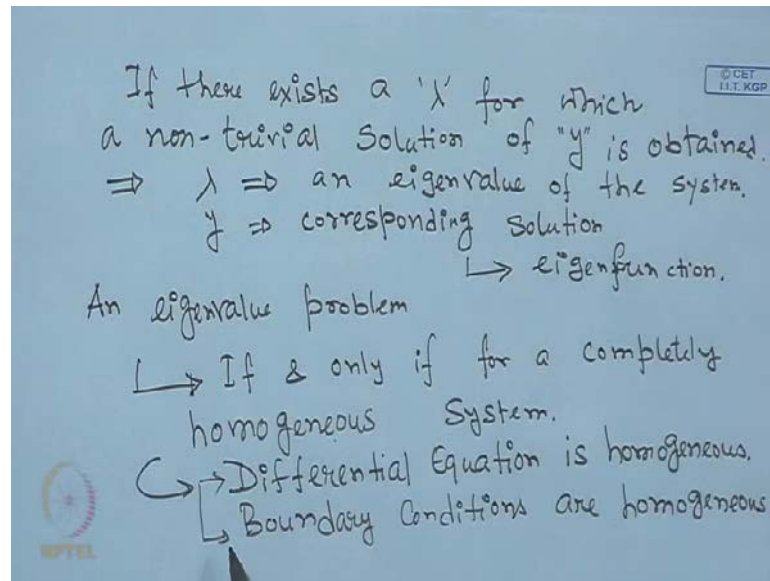 © CET
I.I.T. KGP
If there exists a 'λ' for which
a non-trivial solution of "y" is obtained.
⇒ λ ⇒ an eigenvalue of the system.
y ⇒ corresponding solution
↳ eigenfunction.
An eigenvalue problem
↳ If & only if for a completely
homogeneous system.
↳ → Differential Equation is homogeneous.
↳ Boundary Conditions are homogeneous
NPTEL